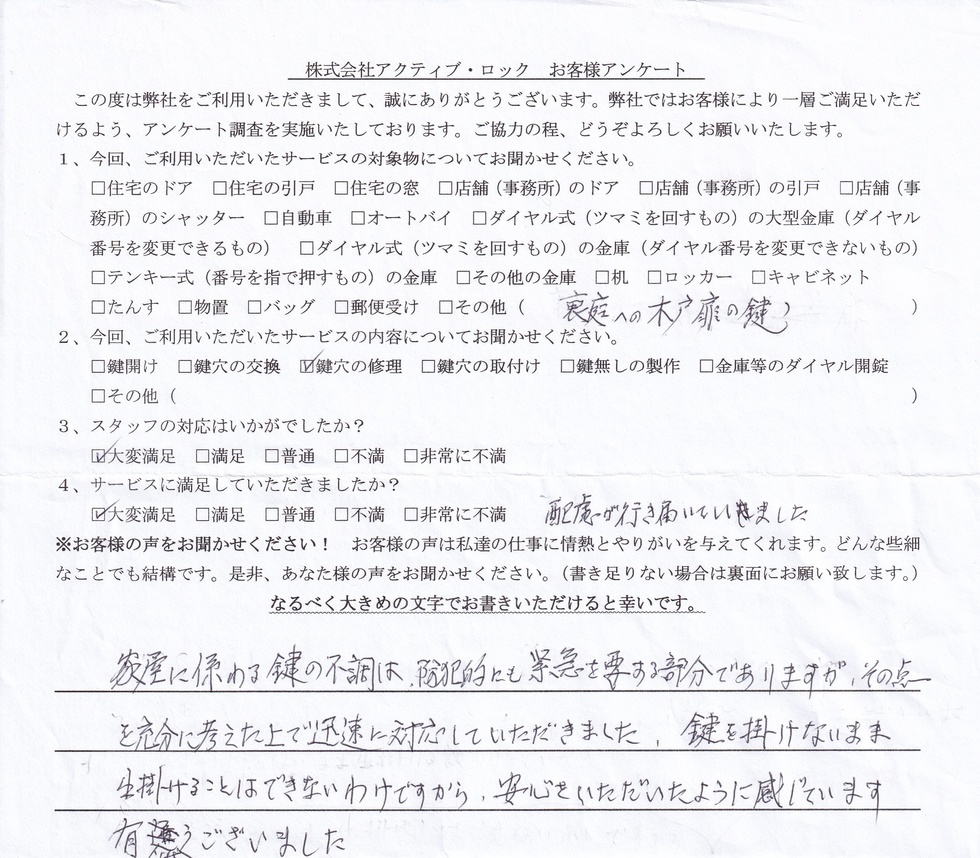 株式会社アクティブ・ロック　お客様アンケート
この度は弊社をご利用いただきまして、誠にありがとうございます。弊社ではお客様により一層ご満足いただ
けるよう、アンケート調査を実施いたしております。ご協力の程、どうぞよろしくお願いいたします。
1、今回、ご利用いただいたサービスの対象物についてお聞かせください。
□住宅のドア　□住宅の引戸　□住宅の窓　□店舗（事務所）のドア　□店舗（事務所）の引戸　□店舗（事
務所）のシャッター　□自動車　□オートバイ　□ダイヤル式（ツマミを回すもの）の大型金庫（ダイヤル
番号を変更できるもの）　□ダイヤル式（ツマミを回すもの）の金庫（ダイヤル番号を変更できないもの）
□テンキー式（番号を指で押すもの）の金庫　□その他の金庫　□机　□ロッカー　□キャビネット
□たんす　□物置　□バッグ　□郵便受け　□その他（　裏庭への木戸扉の鍵）　）
2、今回、ご利用いただいたサービスの内容についてお聞かせください。
□鍵開け　□鍵穴の交換　☑鍵穴の修理　□鍵穴の取付け　□鍵無しの製作　□金庫等のダイヤル開錠
□その他（　）
3、スタッフの対応はいかがでしたか？
☑大変満足　□満足　□普通　□不満　□非常に不満
4、サービスに満足していただきましたか？
☑大変満足　□満足　□普通　□不満　□非常に不満　配慮が行き届いていました
※お客様の声をお聞かせください！　お客様の声は私達の仕事に情熱とやりがいを与えてくれます。どんな些細
なことでも結構です。是非、あなた様の声をお聞かせください。（書き足りない場合は裏面にお願い致します。）
なるべく大きめの文字でお書きいただけると幸いです。
家屋に係わる鍵の不調は、防犯的にも緊急を要する部分でありますが、その点
を充分に考えた上で迅速に対応していただきました。鍵を掛けないまま
出掛けることはできないわけですから、安心をいただいたように感じています
有難うございました